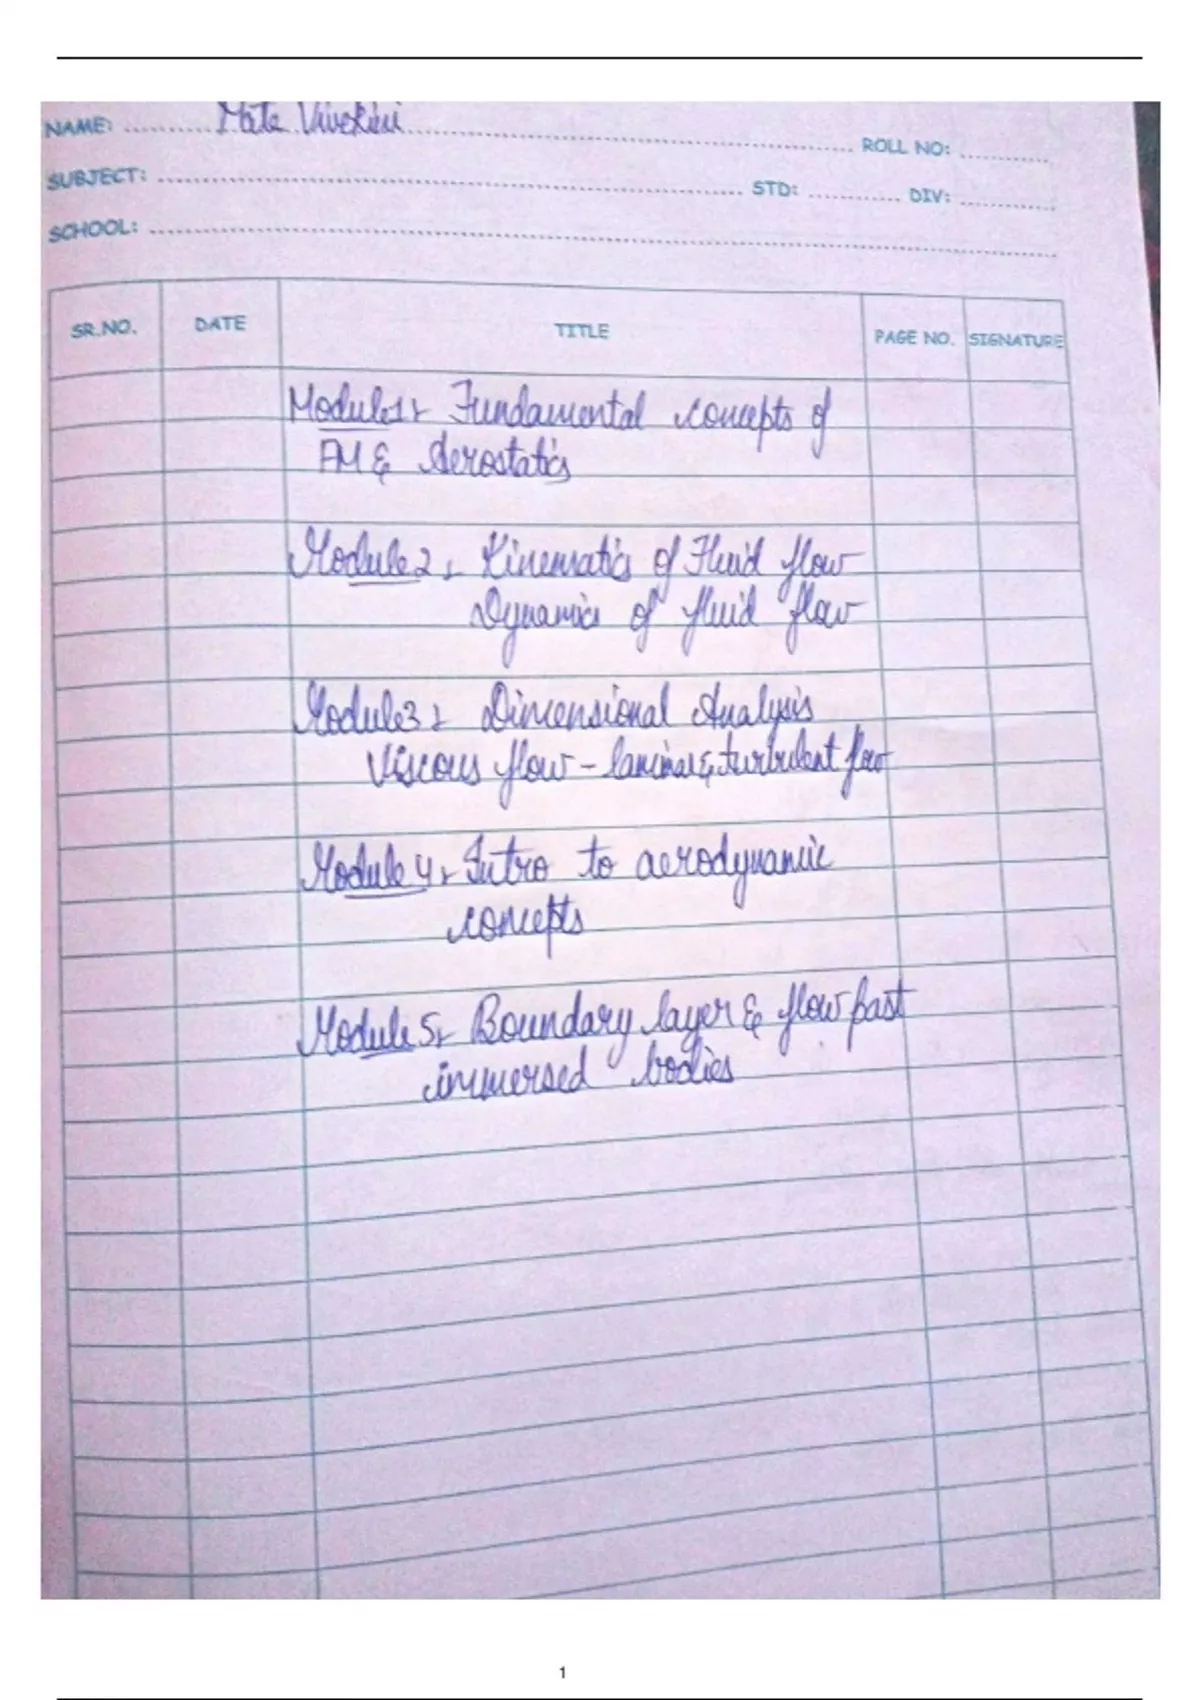 NAME: Mata
ROLL NO:
SUBJECT: STD: DIV:
SCHOOL:
SR.NO. DATE TITLE PAGE NO. SIGNATURE
Module1: Fundamental concepts of
FM & Aerostatics
Module 2: Kinematics of Fluid flow
Dynamics of fluid flow
Module3: Dimensional Analysis
Viscous flow - laminar & turbulent flow
Module 4: Intro to aerodynamic
concepts
Module 5: Boundary layer & flow past
immersed bodies
1